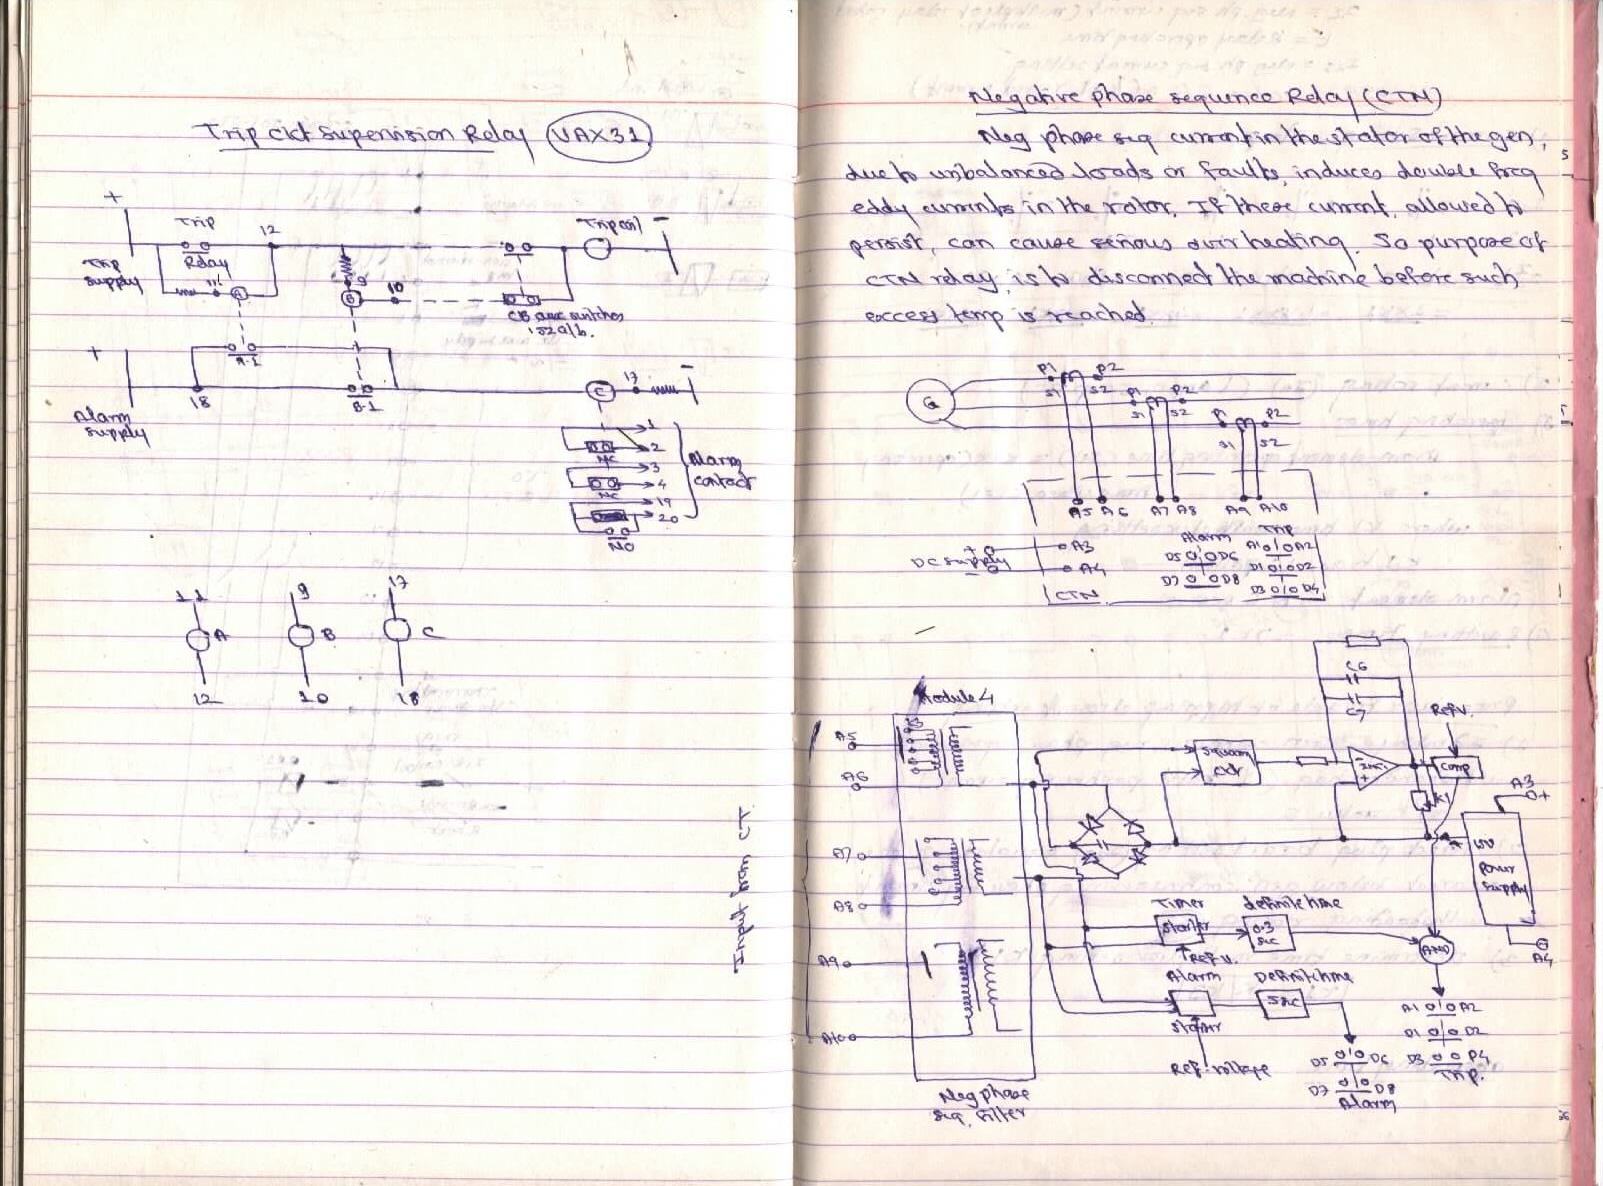 Trip ckt Supervision Relay VAX31
+
Trip
12
Trip coil
-
Trip
supply
Relay
11
A
9
B
10
CB aux switches
152a/b.
+
A-1
18
B-1
C
17
-
Alarm
supply
1
2
NC
3
4
NC
19
20
NO
Alarm
contact
11
9
17
A
B
C
12
10
18
Negative phase sequence Relay (CTN)
Neg phase seq current in the stator of the gen,
due to unbalanced loads or faults, induces double freq
eddy currents in the rotor. If these current, allowed to
persist, can cause serious overheating. So purpose of
CTN relay, is to disconnect the machine before such
excess temp is reached.
G
P1 P2
S1 S2
P1 P2
S1 S2
P1 P2
S1 S2
A5 A6 A7 A8 A9 A10
DC supply
+
-
A3
A4
CTN
Alarm
D5 D6
D7 D8
Trip
A1 A2
D1 D2
D3 D4
Module 4
A5
A6
A7
A8
A9
A10
Input from CT
Neg phase
seq. Filter
C6
C7
Ref V.
Comp
K1
A3
+
Power
Supply
A4
Timer
starter
Ref V.
definite time
0.3
sec
AND
Alarm
starter
Ref. voltage
Definite time
5sec
A1 A2
D1 D2
D3 D4
Trip.
D5 D6
D7 D8
Alarm